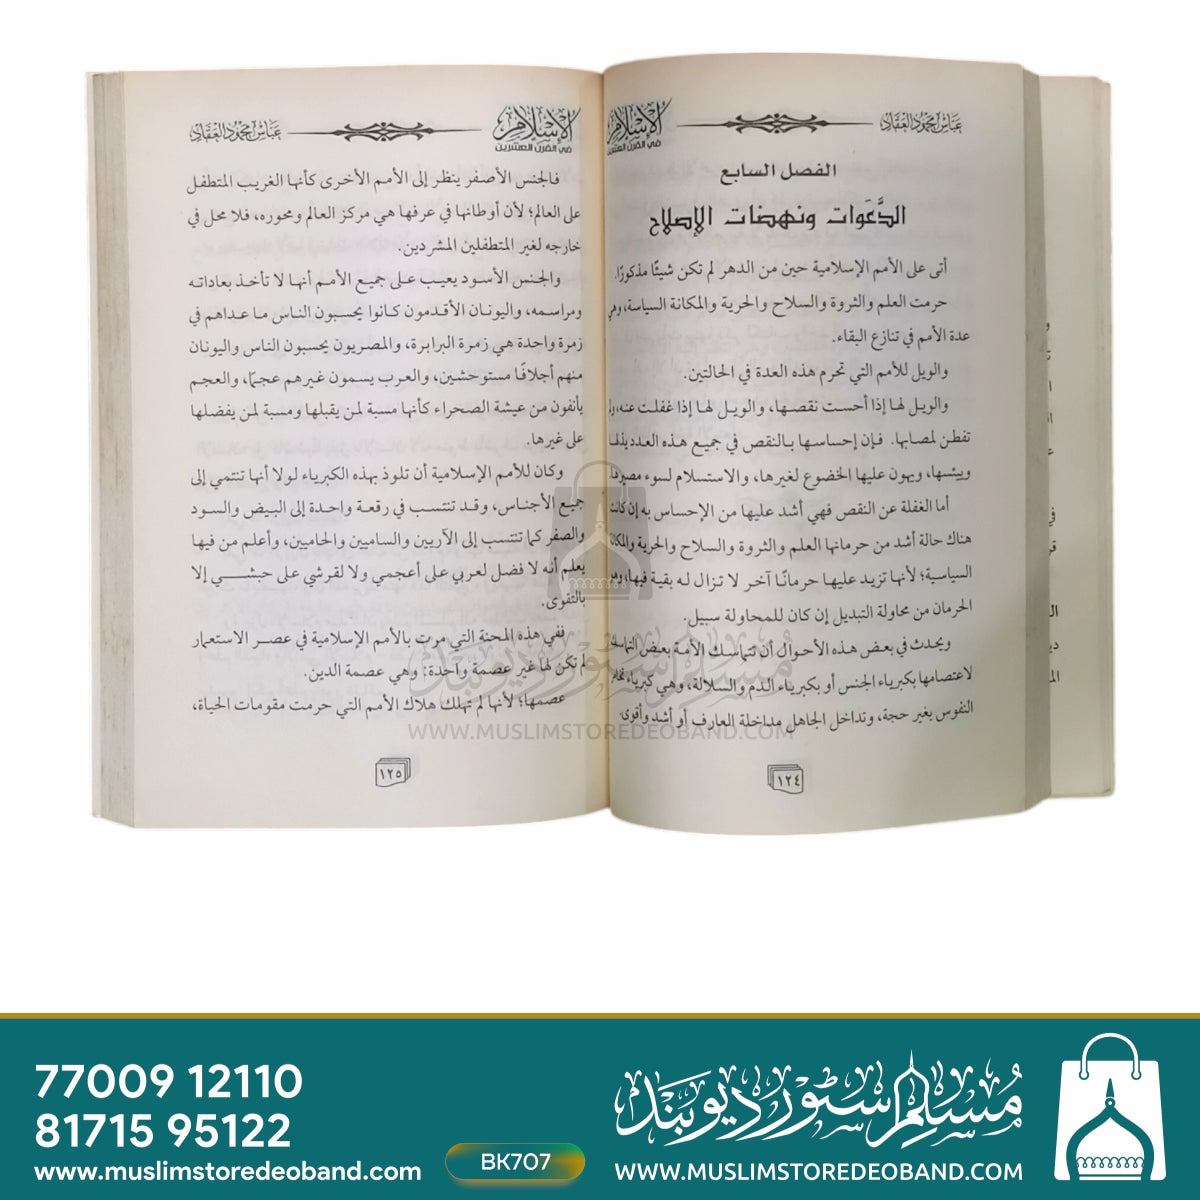 عباس محمود العقاد
الإسلام
في القرن العشرين
الفصل السابع
الدَّعَوات ونهضات الإصلاح
أتى على الأمم الإسلامية حين من الدهر لم تكن شيئًا مذكورًا.
حرمت العلم والثروة والسلاح والحرية والمكانة السياسة، وهي
عدة الأمم في تنازع البقاء.
والويل للأمم التي تحرم هذه العدة في الحالتين.
والويل لها إذا أحست نقصها، والويل لها إذا غفلت عنه،
تفطن لمصابها. فإن إحساسها بالنقص في جميع هذه العدد يذلها
وييئسها، ويهون عليها الخضوع لغيرها، والاستسلام لسوء مصيرها.
أما الغفلة عن النقص فهي أشد عليها من الإحساس به إن كانت
هناك حالة أشد من حرمانها العلم والثروة والسلاح والحرية والمكانة
السياسية؛ لأنها تزيد عليها حرمانًا آخر لا تزال له بقية فيها،
الحرمان من محاولة التبديل إن كان للمحاولة سبيل.
ويحدث في بعض هذه الأحوال أن تتماسك الأمة بعض التماسك
لاعتصامها بكبرياء الجنس أو بكبرياء الدم والسلالة، وهي كبرياء
النفوس بغير حجة، وتداخل الجاهل مداخلة العارف أو أشد وأقوى.
١٢٤
الإسلام
في القرن العشرين
عباس محمود العقاد
فالجنس الأصفر ينظر إلى الأمم الأخرى كأنها الغريب المتطفل
على العالم؛ لأن أوطانها في عرفها هي مركز العالم ومحوره، فلا محل في
خارجه لغير المتطفلين المشردين.
والجنس الأسود يعيب على جميع الأمم أنها لا تأخذ بعاداته
ومراسمه، واليونان الأقدمون كانوا يحسبون الناس ما عداهم في
زمرة واحدة هي زمرة البرابرة، والمصريون يحسبون الناس واليونان
منهم أجلافًا مستوحشين، والعرب يسمون غيرهم عجمًا، والعجم
يأنفون من عيشة الصحراء كأنها مسبة لمن يقبلها ومسبة لمن يفضلها
على غيرها.
وكان للأمم الإسلامية أن تلوذ بهذه الكبرياء لولا أنها تنتمي إلى
جميع الأجناس، وقد تنتسب في رقعة واحدة إلى البيض والسود
والصفر كما تنتسب إلى الآريين والساميين والحاميين، وأعلم من فيها
يعلم أنه لا فضل لعربي على أعجمي ولا لقرشي على حبشي إلا
بالتقوى.
ففي هذه المحنة التي مرت بالأمم الإسلامية في عصر الاستعمار
لم تكن لها غير عصمة واحدة: وهي عصمة الدين.
عصمها؛ لأنها لم تهلك هلاك الأمم التي حرمت مقومات الحياة،
١٢٥
مُسلم سٹور دیوبند
WWW.MUSLIMSTOREDEOBAND.COM
77009 12110
81715 95122
www.muslimstoredeoband.com
BK707
مُسلم سٹور دیوبند
WWW.MUSLIMSTOREDEOBAND.COM